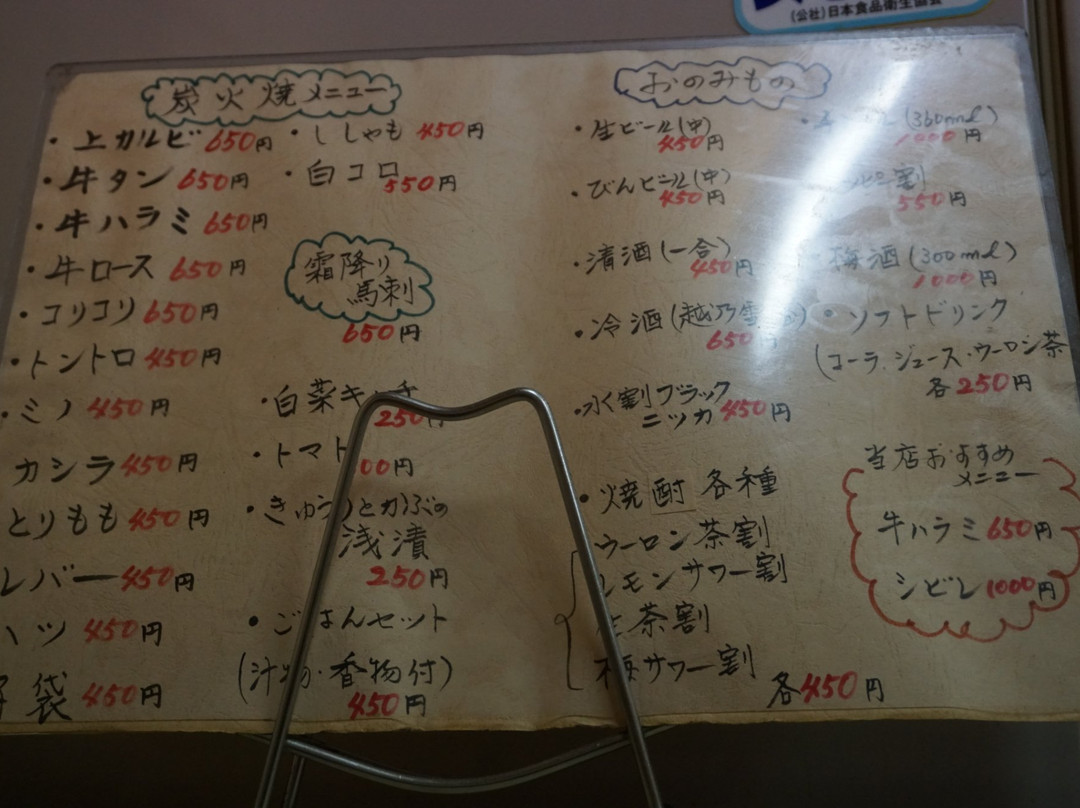 (公社)日本食品衛生協会
炭火焼メニュー
・上カルビ 650円
・牛タン 650円
・牛ハラミ 650円
・牛ロース 650円
・コリコリ 650円
・トントロ 450円
・ミノ 450円
カシラ 450円
とりもも 450円
レバー 450円
ハツ 450円
袋 450円
・ししゃも 450円
・白コロ 550円
霜降り
馬刺
650円
・白菜キムチ
250円
・トマト
00円
・きゅうりとかぶの
浅漬
250円
・ごはんセット
(汁物・香物付)
450円
おのみもの
・生ビール(中)
450円
・びんビール(中)
450円
・清酒(一合)
450円
・冷酒(越乃雪
650円
・水割ブラック
ニッカ 450円
・焼酎 各種
ウーロン茶割
レモンサワー割
茶割
梅サワー割
各450円
(360ml)
円
割
550円
梅酒(300ml)
1000円
・ソフトドリンク
(コーラ、ジュース・ウーロン茶
各250円
当店おすすめ
メニュー
牛ハラミ 650円
シビレ 1000円